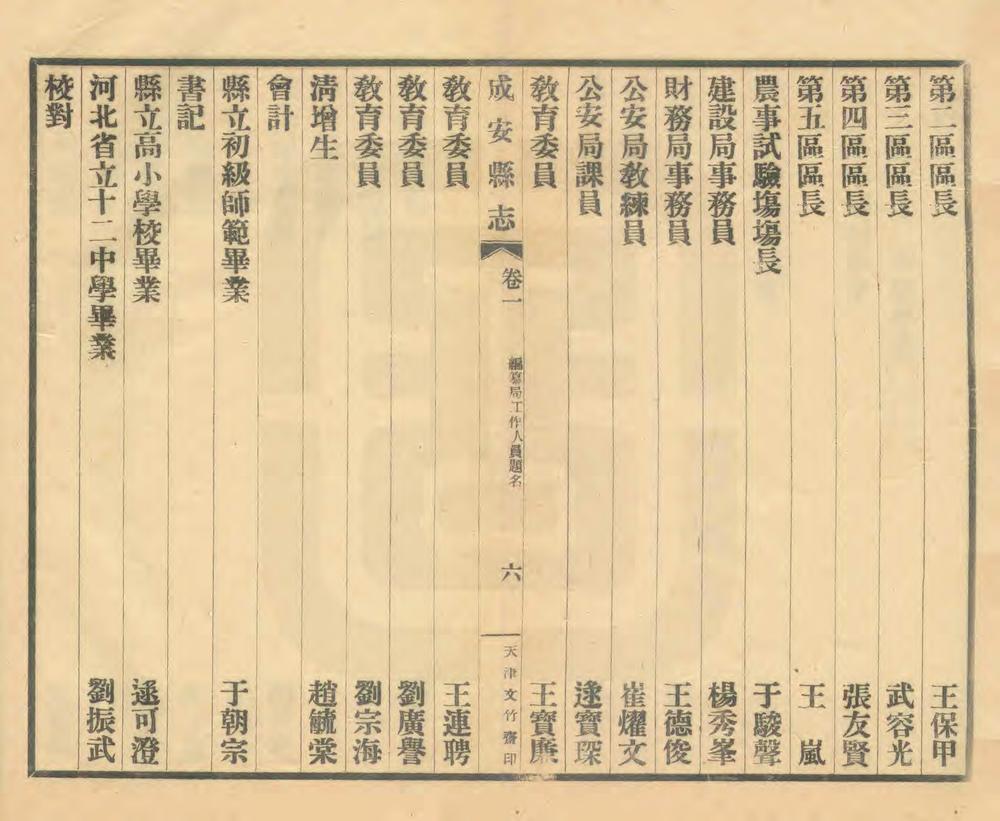 第二區區長 王保甲
第三區區長 武容光
第四區區長 張友賢
第五區區長 王嵐
農事試驗塲塲長 于駿聲
建設局事務員 楊秀峯
財務局事務員 王德俊
公安局教練員 崔燿文
公安局課員 逯寶琛
教育委員 王寶廉
成安縣志 卷一 編纂局工作人員題名 六 天津文竹齋印
教育委員 王連聘
教育委員 劉廣譽
教育委員 劉宗海
清增生 趙毓棠
會計
縣立初級師範畢業 于朝宗
書記
縣立高小學校畢業 逯可澄
河北省立十二中學畢業 劉振武
校對